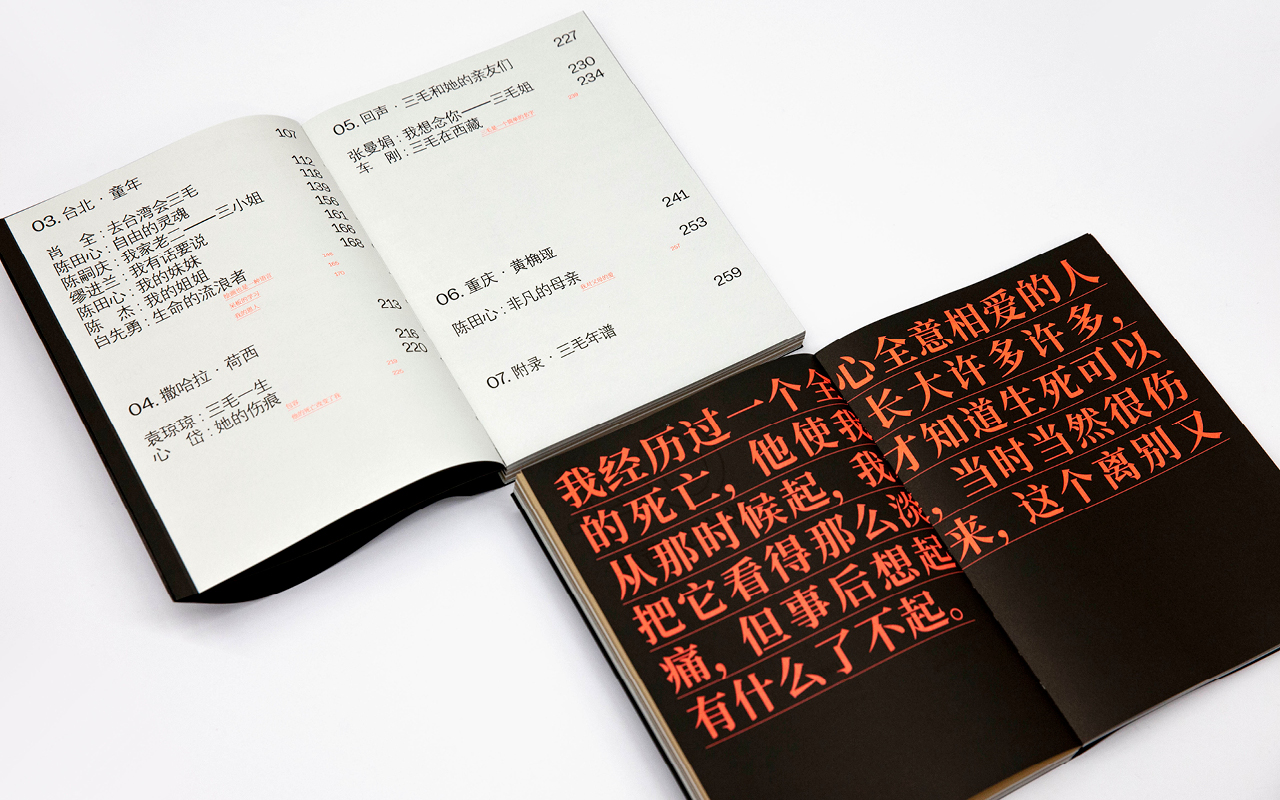 03. 台北 · 童年 107
肖 全 : 去台湾会三毛 112
陈田心 : 自由的灵魂 118
陈嗣庆 : 我家老二——三小姐 139
缪进兰 : 我有话要说 156
陈田心 : 我的妹妹 161
陈 杰 : 我的姐姐 166
白先勇 : 生命的流浪者 168
04. 撒哈拉 · 荷西 213
袁琼琼 : 三毛一生 216
心 岱 : 她的伤痕 220
05. 回声 · 三毛和她的亲友们 227
张曼娟 : 我想念你——三毛姐 230
车 刚 : 三毛在西藏 234
06. 重庆 · 黄桷垭 241
陈田心 : 非凡的母亲 253
257
07. 附录 · 三毛年谱 259
我经历过一个全心全意相爱的人
的死亡，他使我长大许多许多，
从那时候起，我才知道生死可以
把它看得那么淡，当时当然很伤
痛，但事后想起来，这个离别又
有什么了不起。